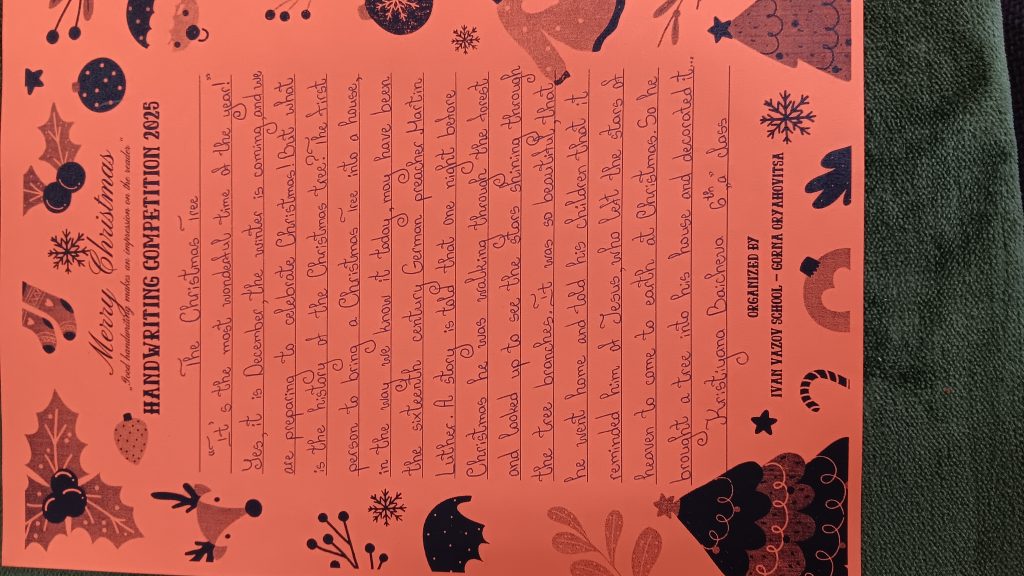 Merry Christmas
"Good handwriting makes an impression on the reader"
HANDWRITING COMPETITION 2025
The Christmas Tree
"It's the most wonderful time of the year!"
Yes, it is December, the winter is coming, and we
are preparing to celebrate Christmas! But what
is the history of the Christmas tree? The first
person to bring a Christmas Tree into a house,
in the way we know it today, may have been
the sixteenth century German preacher Martin
Luther. A story is told that one night before
Christmas he was walking through the forest
and looked up to see the stars shining through
the tree branches. It was so beautiful, that
he went home and told his children that it
reminded him of Jesus, who left the stars of
heaven to come to earth at Christmas. So he
brought a tree into his house and decorated it...
Kristiyana Baicheva 6th "a" class
ORGANIZED BY
IVAN VAZOV SCHOOL – GORNA ORYAHOVITSA